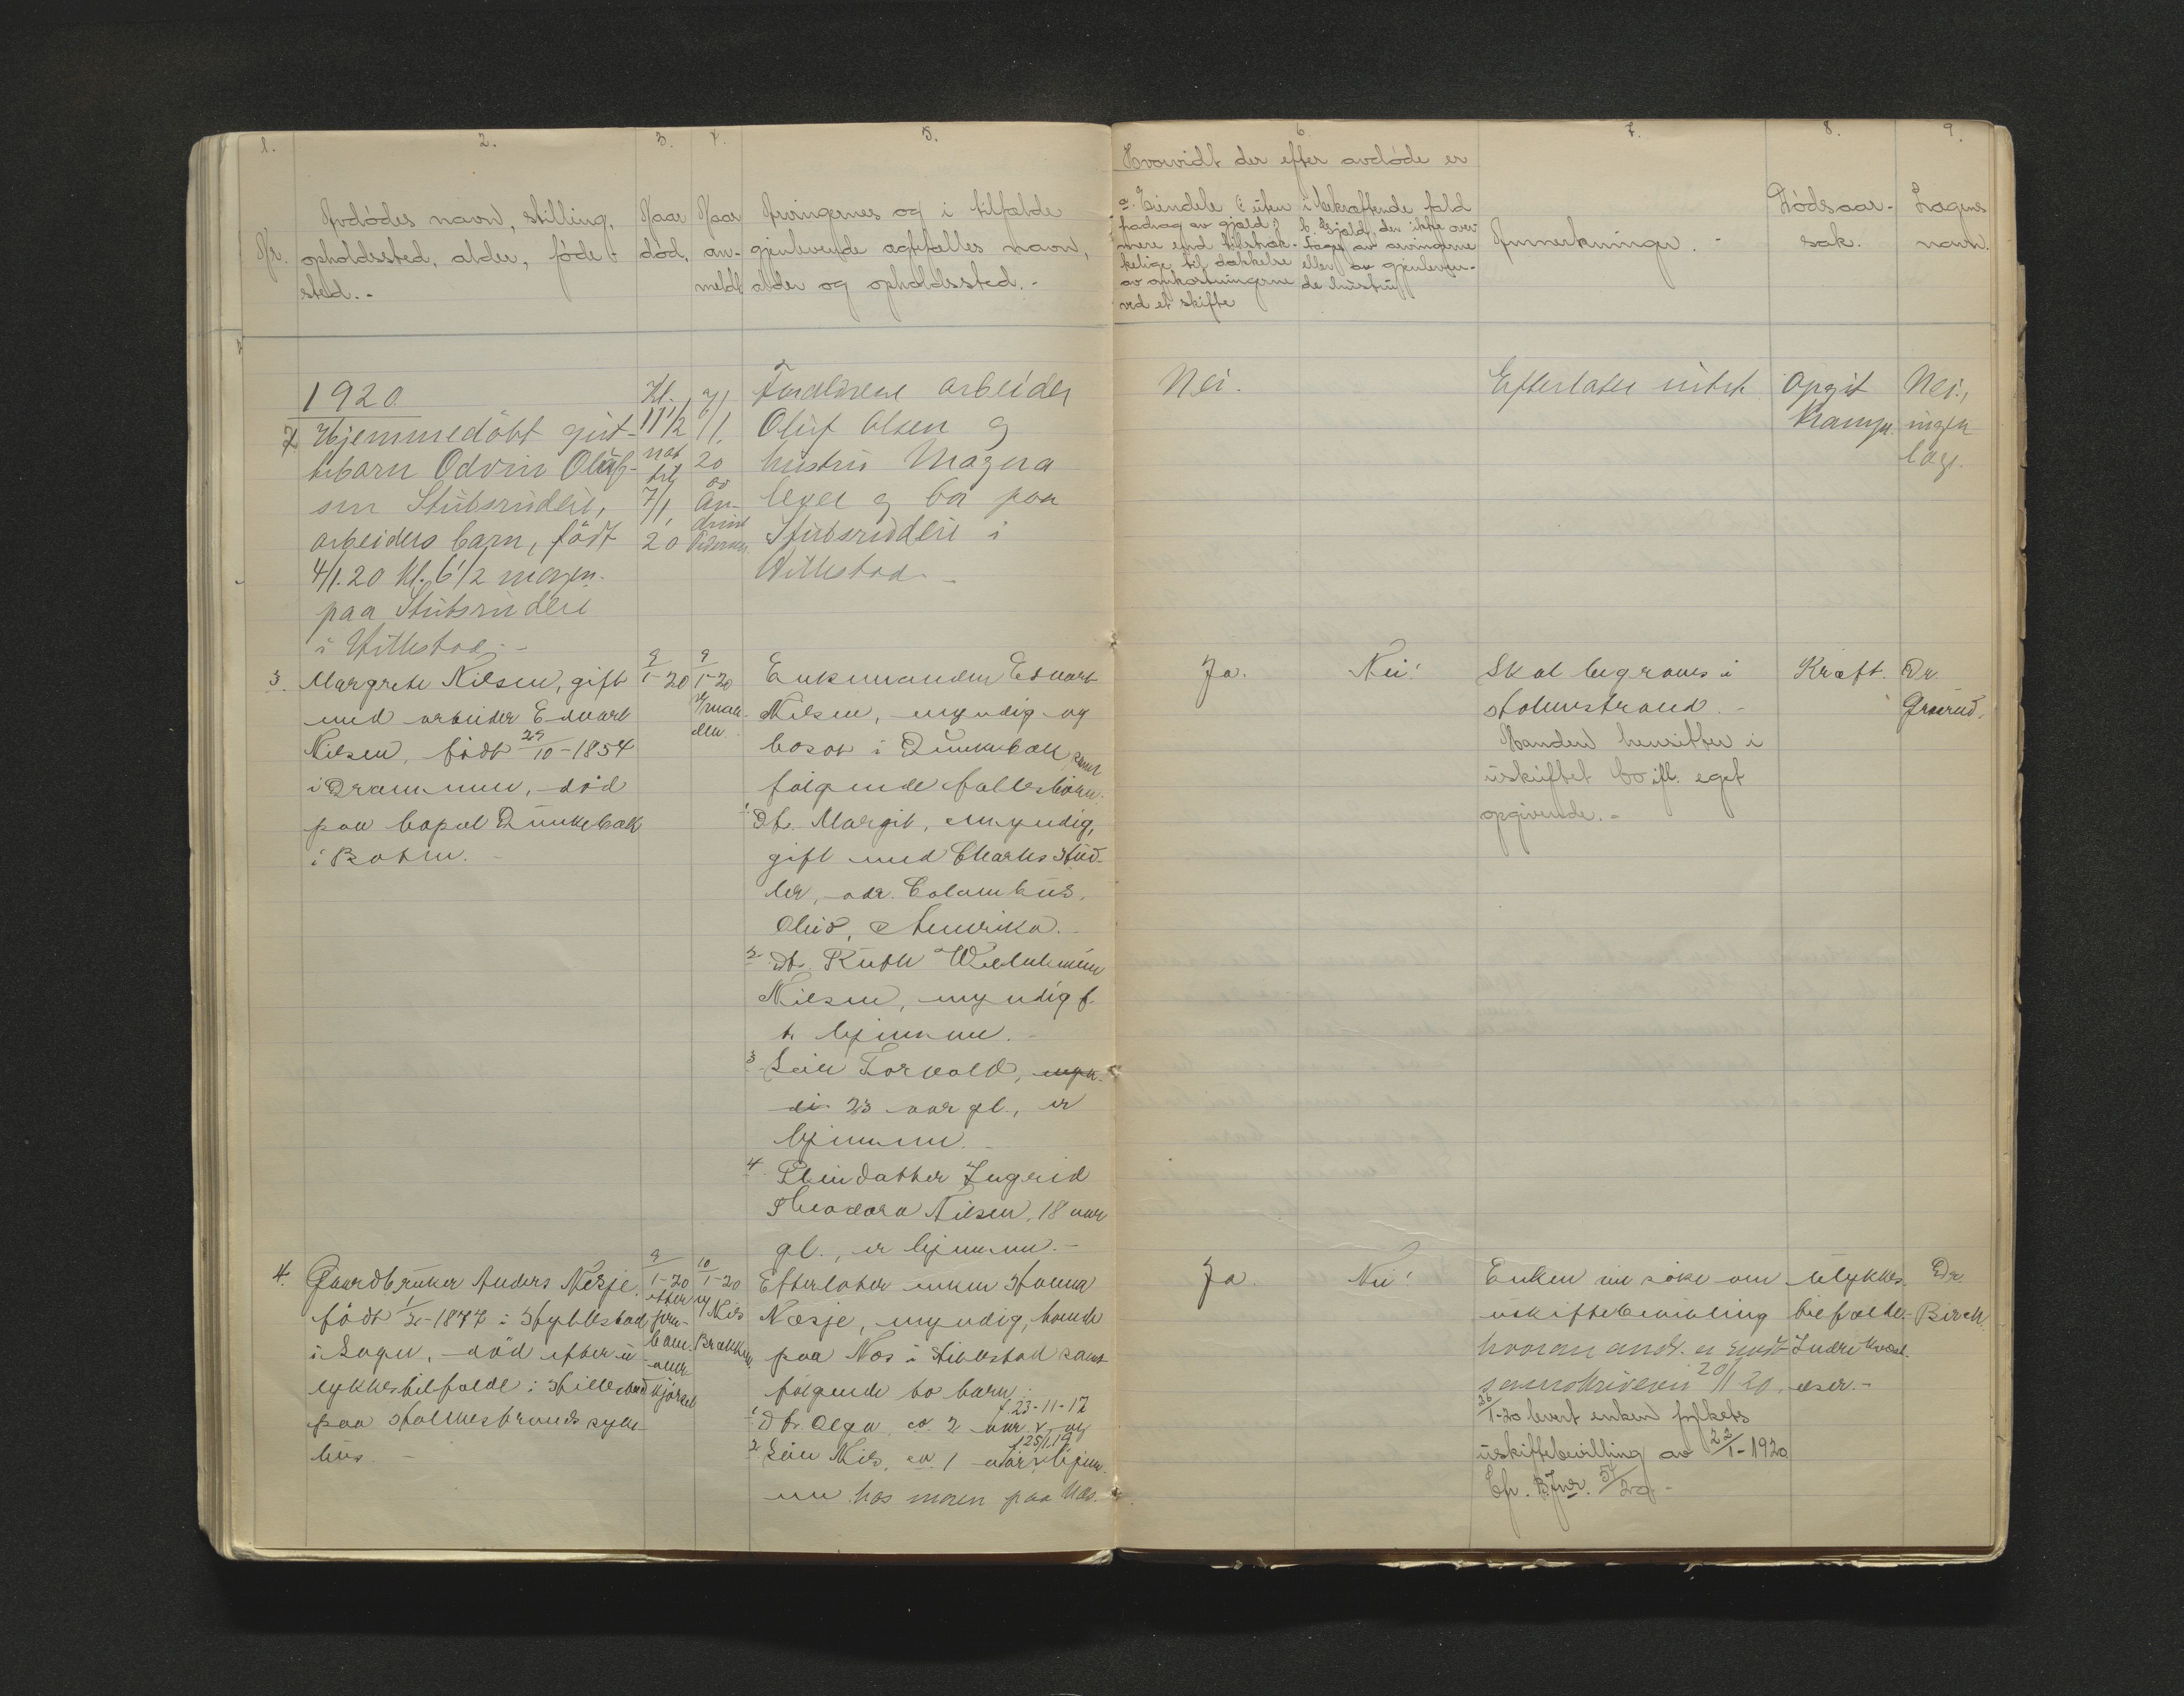 1.
2.
3.
4.
5.
Nr.
Avdödes navn, stilling,
opholdssted, alder, föde-
sted.-
Naar
död.
Naar
an-
meldt
Arvingernes og i tilfælde
gjenlevende ægtefælles navn,
alder og opholdssted.-
6.
7.
8.
9.
Hvorvidt der efter avdöde er
a. Eiendele (uten
fradrag av gjæld)
mere end tilstræk-
kelige til dækkelse
av omkostningerne
ved et skifte
i bekræftende fald
b. Gjæld, den ikke over
tages av arvingerne
eller av gjenleven-
de hustru
Anmerkninger.-
Dödsaar-
sak.
Lægens
navn.
1920
2 Hjemmedöbt gut-
tebarn Odvin Oluf-
sen Stubsrudeie,
arbeiders barn, födt
4/1.20 kl. 6 1/2 morgen.
paa Stubsrudeie
i Hillestad.-
Kl.
11 1/2
nat
til
7/1
20
7/
/1.
20
av
Forældrene arbeider
Oluf Olsen og
hustru Magna
lever og bor paa
Stubsrudeie i
Hillestad.-
Nei.
Efterlater intet
Opgit
Krampe.
Nei,
ingen
læge.
3. Margrete Nilsen, gift
med arbeider Edvart
Nilsen, födt 29/10-1854
i Drammen, död
paa bopæl Dunkebæk
i Botne.-
9/1-20
9/1-20
v/man-
den.
Enkemanden Edvart
Nilsen, myndig og
bosat i Dunkebæk, samt
fölgende fællesbörn:
1. Dt. Margit, myndig,
gift med Charles Stüd-
ler, adr. Columbus,
Ohio, Amerika.-
2. Dt. Ruth Wilhelmine
Nilsen, myndig f.
t. hjemme.-
3. Sön Torvald, myn-
di 23 aar gl., er
hjemme.-
4. Pleiedatter Ingrid
Theodora Nilsen, 18 aar
gl., er hjemme.-
Ja.
Nei!
Skal begraves i
Holmestrand.-
Manden hensitter i
uskiftet bo ifl. eget
opgivende.-
Kræft.
Dr.
Graarud.
4. Gaardbruker Anders Næsje,
födt 1/2-1877 i Hyllestad
i Sogn, död efter u-
lykkestilfælde i Hillestad
paa Holmestrands syke-
hus.-
9/1-20
efter
10/1-20
v/ Nils
Brække
Efterlater enken Hanna
Næsje, myndig, boende
paa Næs i Hillestad samt
fölgende to barn:
f. 23-11-17
1. Dt. Olga, ca. 2 aar x og
f 25/1.19
2. Sön Nils, ca. 1 aar x hjem-
me hos moren paa Næs.
Ja.
Nei!
Enken vil söke om
uskiftebevilling
hvorom andr. er sendt
sorenskriveren 20/1 20.
26/1-20 levert enken fylkets
uskiftebevilling av 22/1-1920.
Cfr. B.Jnr. 54/20.-
Ulykkes-
tilfælde.-
Indre kvæst-
elser.-
Dr.
Birch.